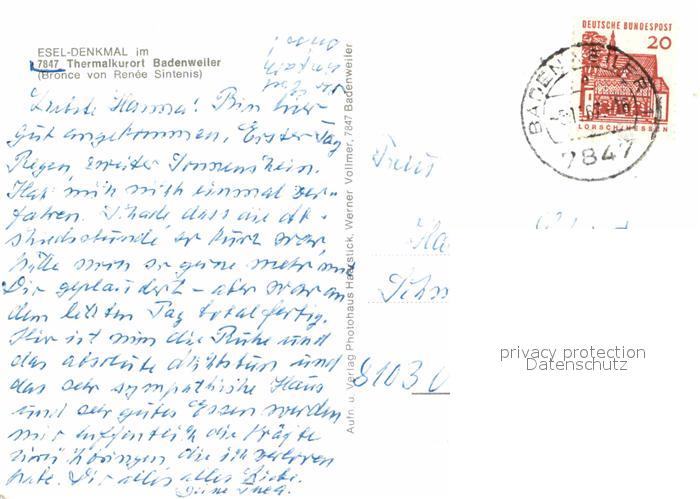 ESEL-DENKMAL im
7847 Thermalkurort Badenweiler
(Bronce von Renée Sintenis)
Liebste Hanna! Bin hier
gut angekommen, Erster Tag
Regen, zweiter Sonnenschein.
Hab mich nicht einmal ver-
fahren. Schade, dass die Ab-
schiedsstunde so kurz war,
hätte noch so gerne mehr mit
Dir geplaudert - aber war an
dem letzten Tag total fertig.
Hier ist nun die Ruhe und
das absolute Nichtstun und
das sehr sympathische Haus
und sehr gutes Essen werden
mir hoffentlich die Kräfte
zurückbringen, die ich verloren
habe. Dir alles, alles Liebe.
Deine
Aufn. u. Verlag Photohaus Hartstück, Werner Vollmer, 7847 Badenweiler
DEUTSCHE BUNDESPOST
20
LORSCH/HESSEN
BADENWEILER
7847
Frau
Ha
Schw
8103 O
privacy protection
Datenschutz